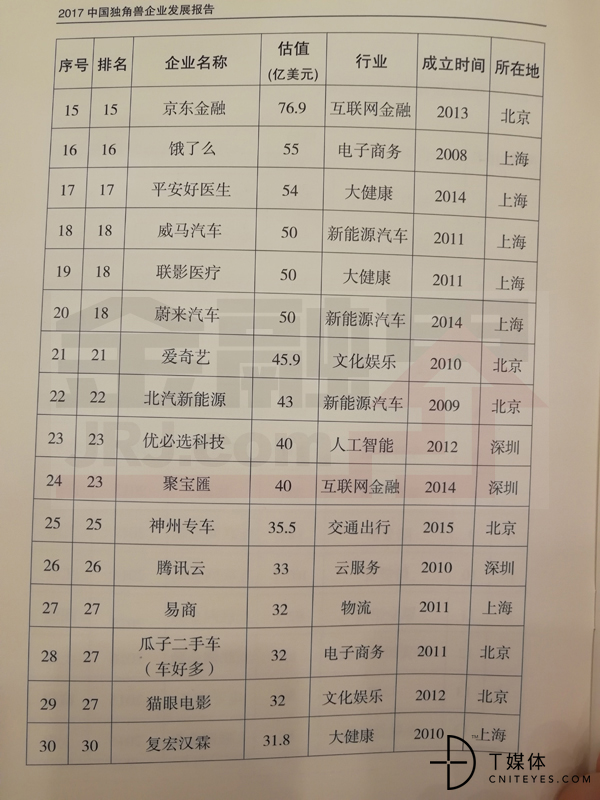 2017 中国独角兽企业发展报告
序号 排名 企业名称 估值 (亿美元) 行业 成立时间 所在地
15 15 京东金融 76.9 互联网金融 2013 北京
16 16 饿了么 55 电子商务 2008 上海
17 17 平安好医生 54 大健康 2014 上海
18 18 威马汽车 50 新能源汽车 2011 上海
19 18 联影医疗 50 大健康 2011 上海
20 18 蔚来汽车 50 新能源汽车 2014 上海
21 21 爱奇艺 45.9 文化娱乐 2010 北京
22 22 北汽新能源 43 新能源汽车 2009 北京
23 23 优必选科技 40 人工智能 2012 深圳
24 23 聚宝匯 40 互联网金融 2014 深圳
25 25 神州专车 35.5 交通出行 2015 北京
26 26 腾讯云 33 云服务 2010 深圳
27 27 易商 32 物流 2011 上海
28 27 瓜子二手车 (车好多) 32 电子商务 2011 北京
29 27 猫眼电影 32 文化娱乐 2012 北京
30 30 复宏汉霖 31.8 大健康 2010 上海
金融界
JRJ.com
T媒体
CNITEYES.COM